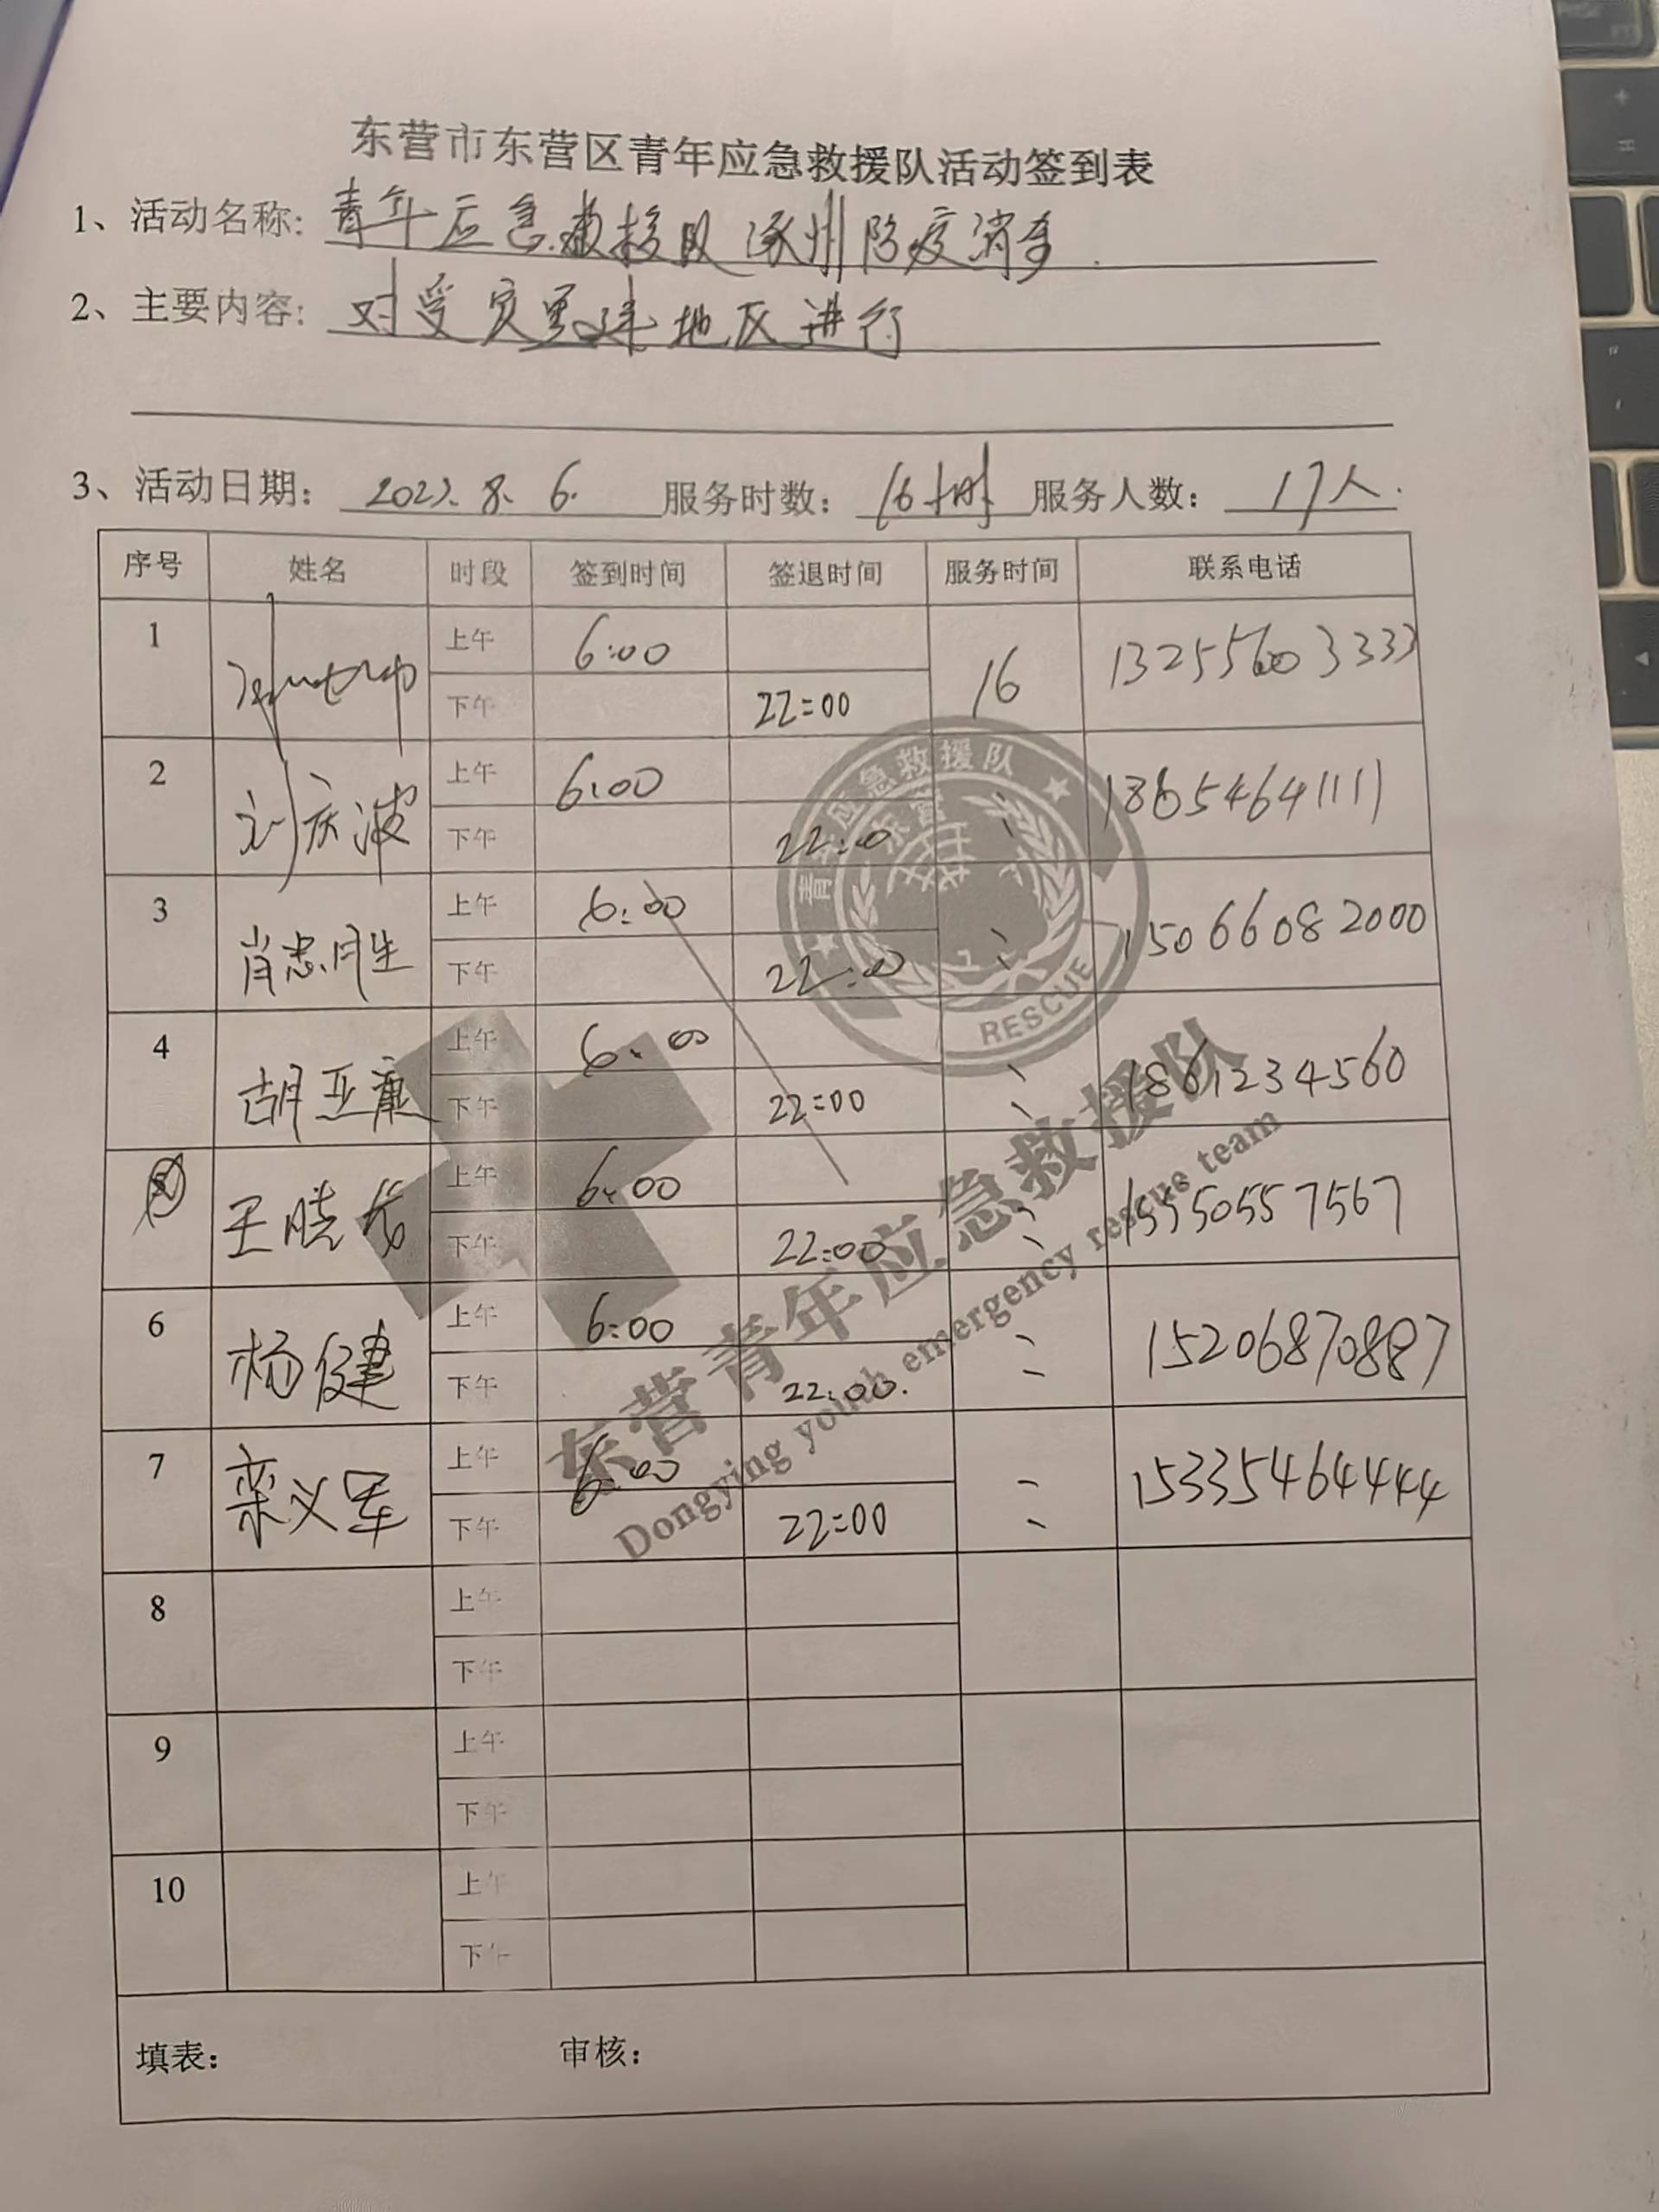 东营市东营区青年应急救援队活动签到表
1、活动名称: 青年应急救援队涿州防疫消杀.
2、主要内容: 对受灾重建地区进行
3、活动日期: 2023.8.6. 服务时数: 16小时 服务人数: 17人.
序号 姓名 时段 签到时间 签退时间 服务时间 联系电话
1 上午 6:00 16 13255603333
下午 22:00
2 刘庆波 上午 6:00 〃 18654641111
下午 22:0
3 肖忠胜 上午 6:00 〃 15066082000
下午 22:00
4 胡亚康 上午 6:00 〃 1861234560
下午 22:00
5 王晓 上午 6:00 〃 15550557567
下午 22:00
6 杨健 上午 6:00 〃 15206870887
下午 22:00.
7 栾义军 上午 6:00 〃 15335464444
下午 22:00
8 上午
下午
9 上午
下午
10 上午
下午
填表: 审核:
青年应急救援队
东营
RESCUE
东营青年应急救援队
Dongying youth emergency rescue team